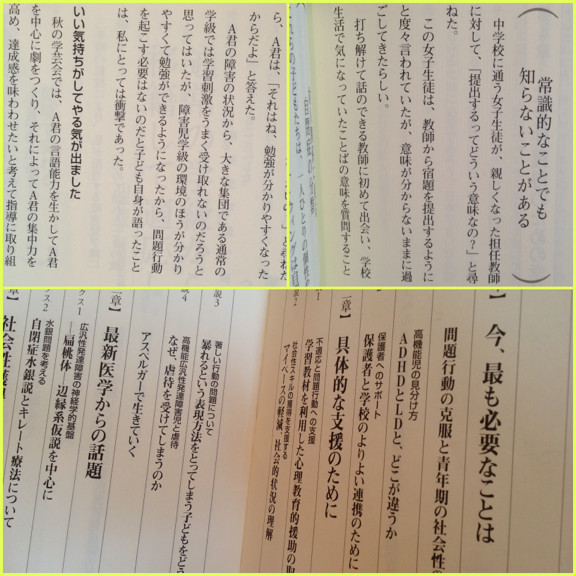 常識的なことでも
知らないことがある
中学校に通う女子生徒が、親しくなった担任教師
に対して、「提出するってどういう意味なの？」と尋
ねた。
この女子生徒は、教師から宿題を提出するように
と度々言われていたが、意味が分からないままに過
ごしてきたらしい。
打ち解けて話のできる教師に初めて出会い、学校
生活で気になっていたことばの意味を質問すること
ら、A君は、「それはね、勉強が分かりやすくなった
からだよ」と答えた。
A君の障害の状況から、大きな集団である通常の
学級では学習刺激をうまく受け取れないのだろうと
思ってはいたが、障害児学級の環境のほうが分かり
やすくて勉強ができるようになったから、問題行動
を起こす必要はないのだと子ども自身が語ったこと
は、私にとっては衝撃であった。
いい気持ちがしてやる気が出ました
秋の学芸会では、A君の言語能力を生かしてA君
を中心に劇をつくり、それによってA君の集中力を
高め、達成感を味わわせたいと考えて指導に取り組
今、最も必要なことは
問題行動の克服と青年期の社会性
高機能児の見分け方
ADHDとLDと、どこが違うか
保護者へのサポート
保護者と学校のよりよい連携のために
具体的な支援のために
不適応と問題行動への支援
学習教材を利用した心理教育的援助の
社会性スキルの獲得を支援する
マイペースの軽減、社会的状況の理解
説3
著しい行動の問題について
暴れるという表現方法をとってしまう子どもをどう
説4
高機能広汎性発達障害児と虐待
なぜ、虐待を受けてしまうのか
アスペルガーで生きていく
最新医学からの話題
クス1
広汎性発達障害の神経学的基盤
扁桃体 辺縁系仮説を中心に
クス2
水銀問題を考える
自閉症水銀説とキレート療法について